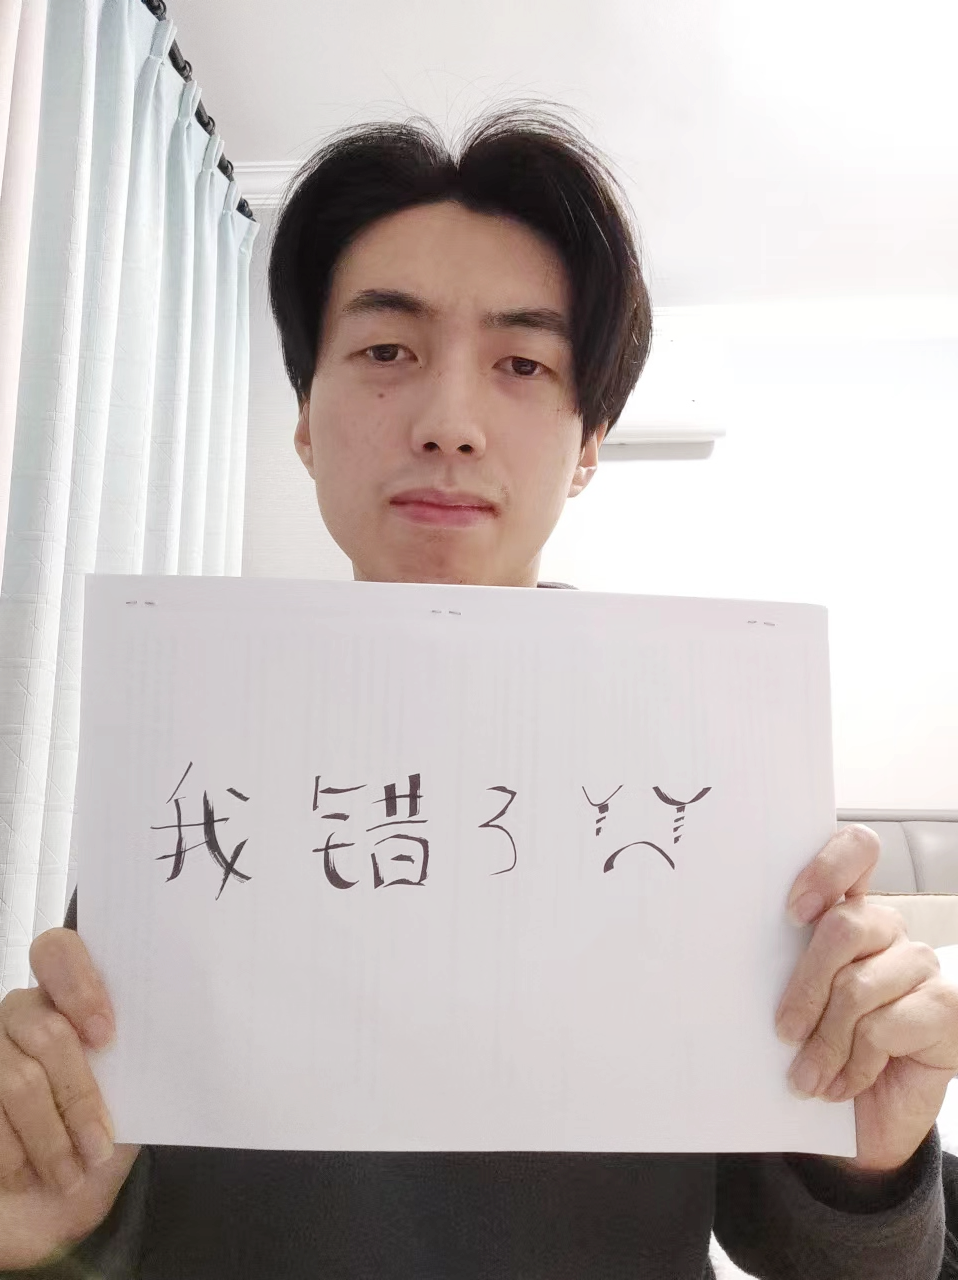 我错了